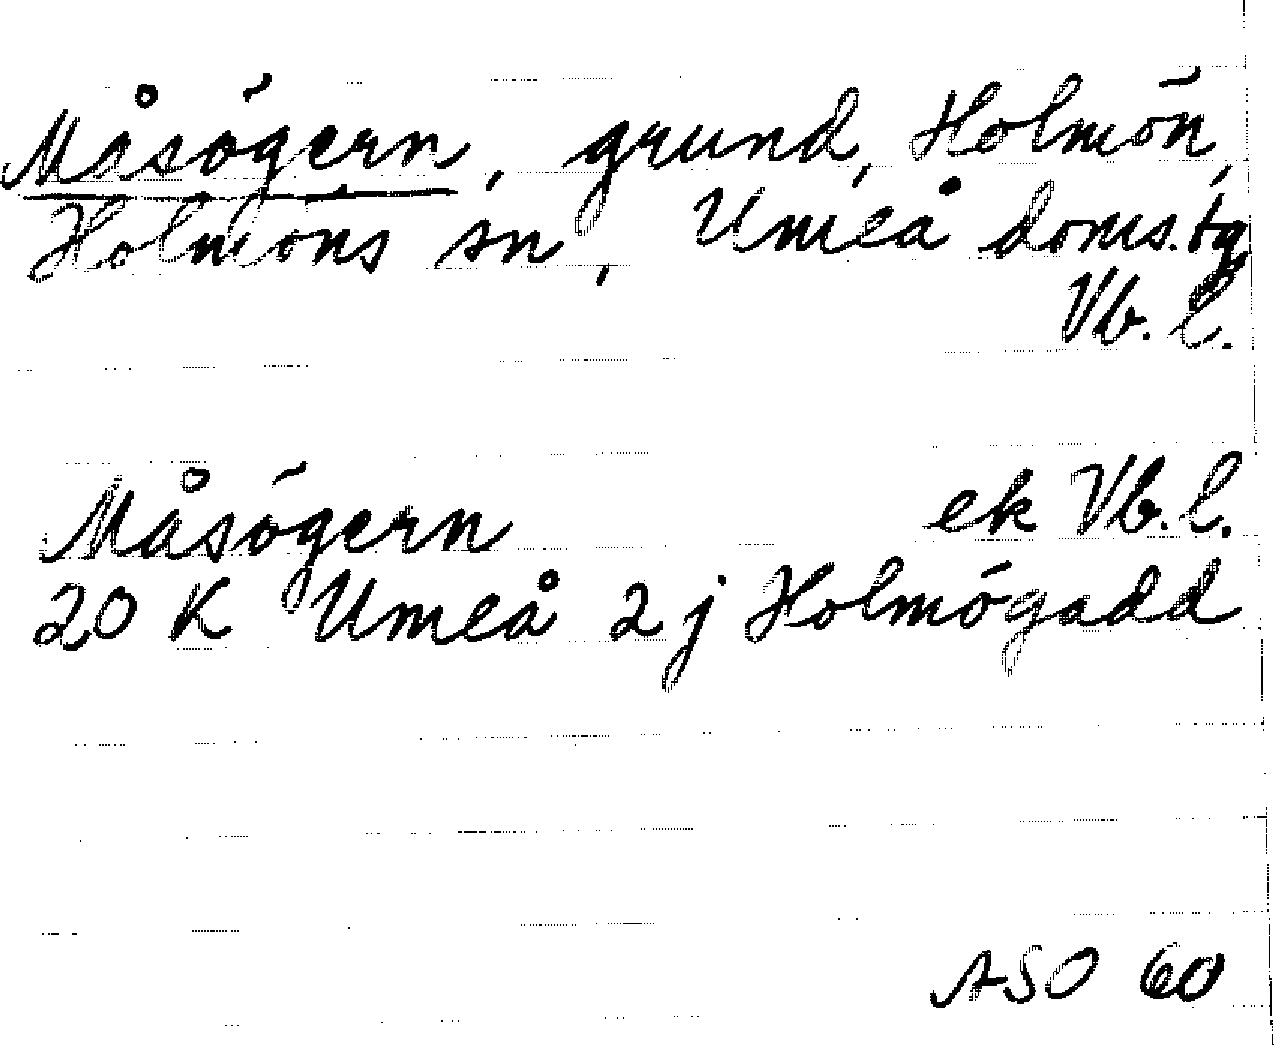 Måsögern, grund, Holmön,
Holmöns sn, Umeå doms.tg
Vb. l.
Måsögern ek Vb. l.
20 K Umeå 2 j Holmögadd
ASO 60